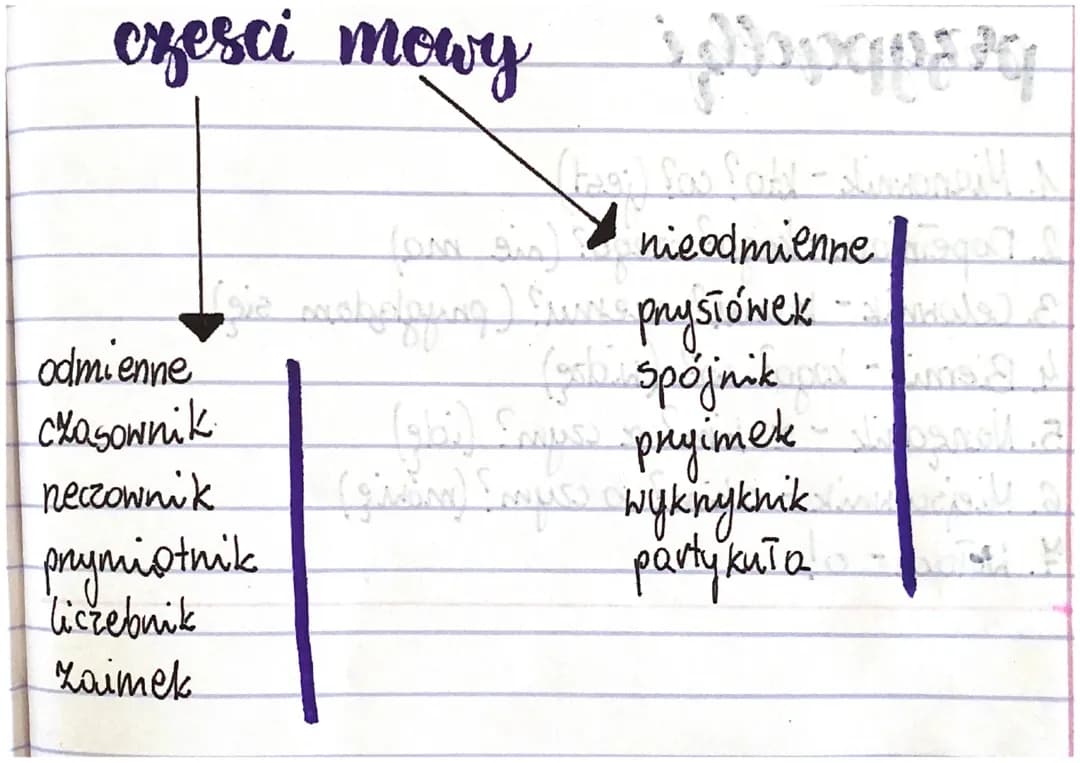 czesci mowy
odmienne
czasownik
rzeczownik
przymiotnik
liczebnik
zaimek
nieodmienne
przysłówek
spójnik
przyimek
wykrzyknik
partykuła